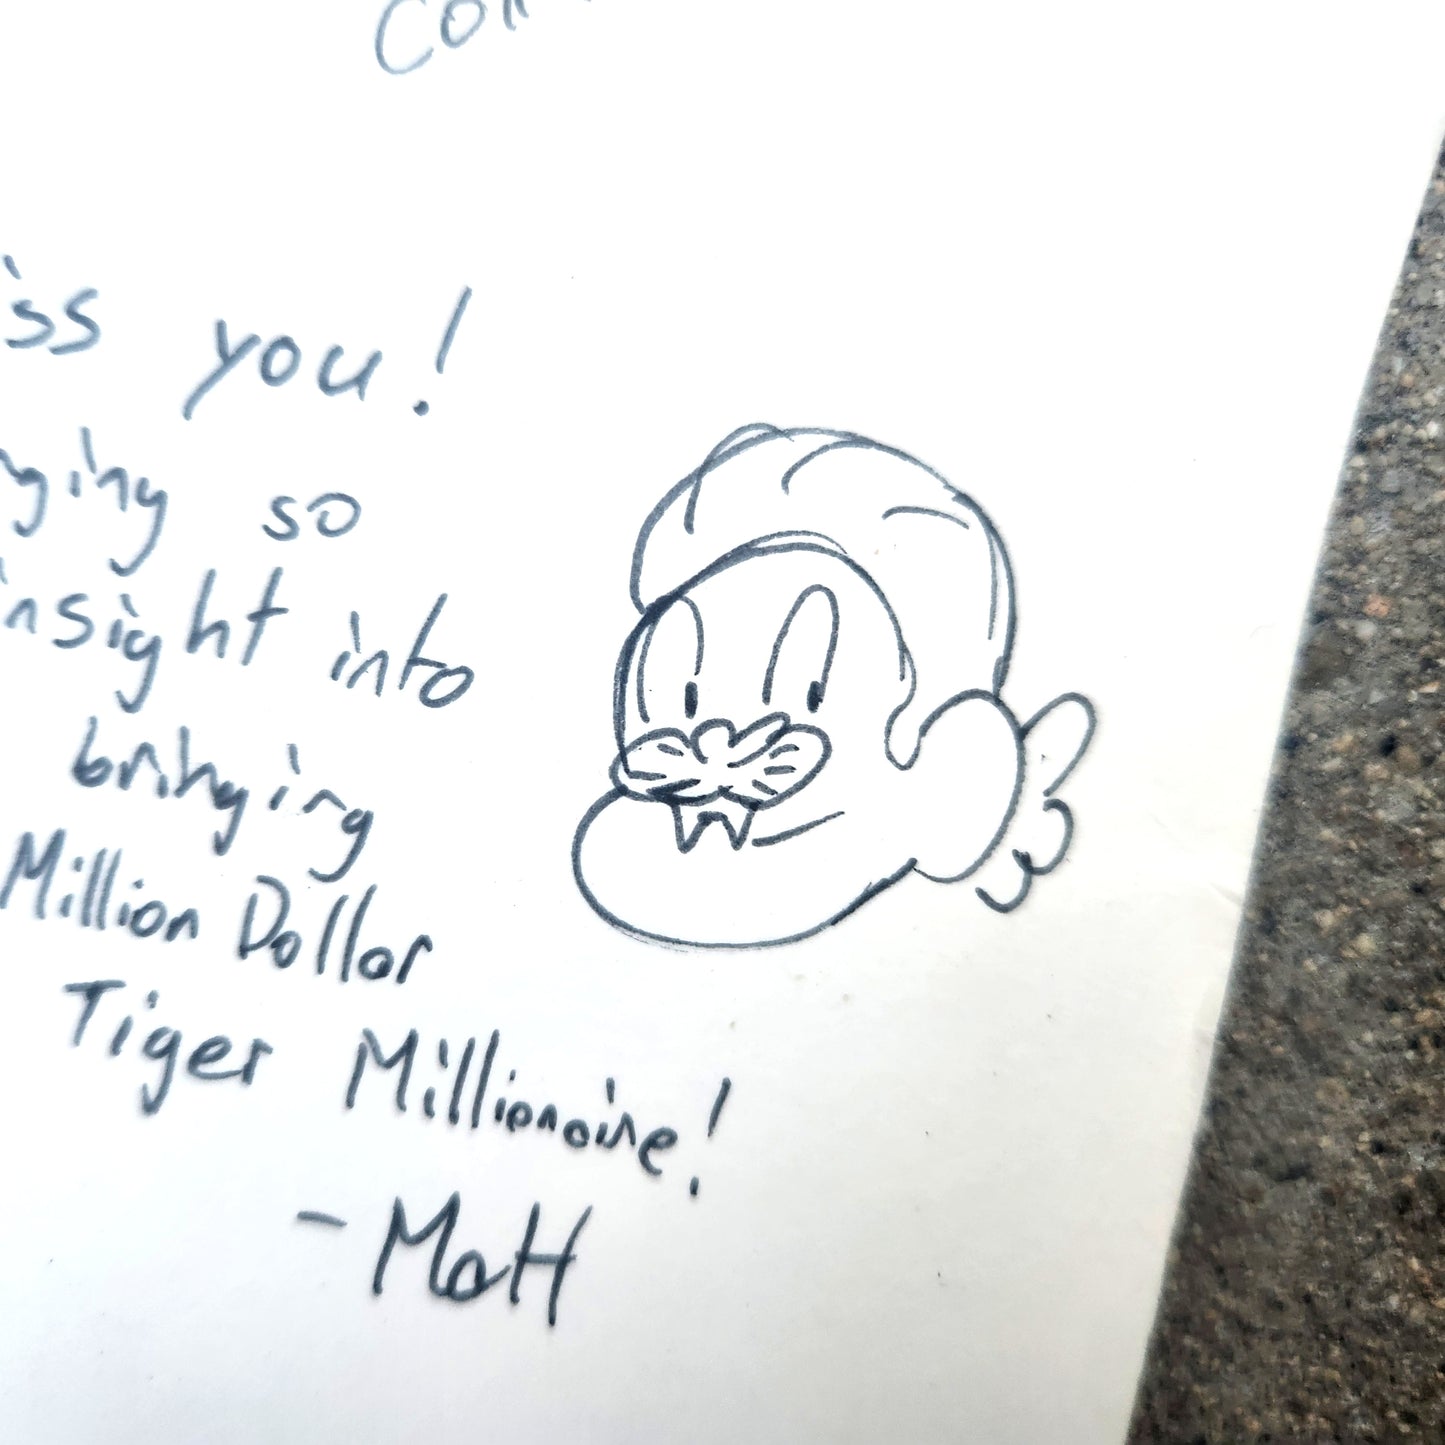 Con
iss you!
nging so
insight into
bringing
Million Dollar
Tiger Millionaire!
- Matt